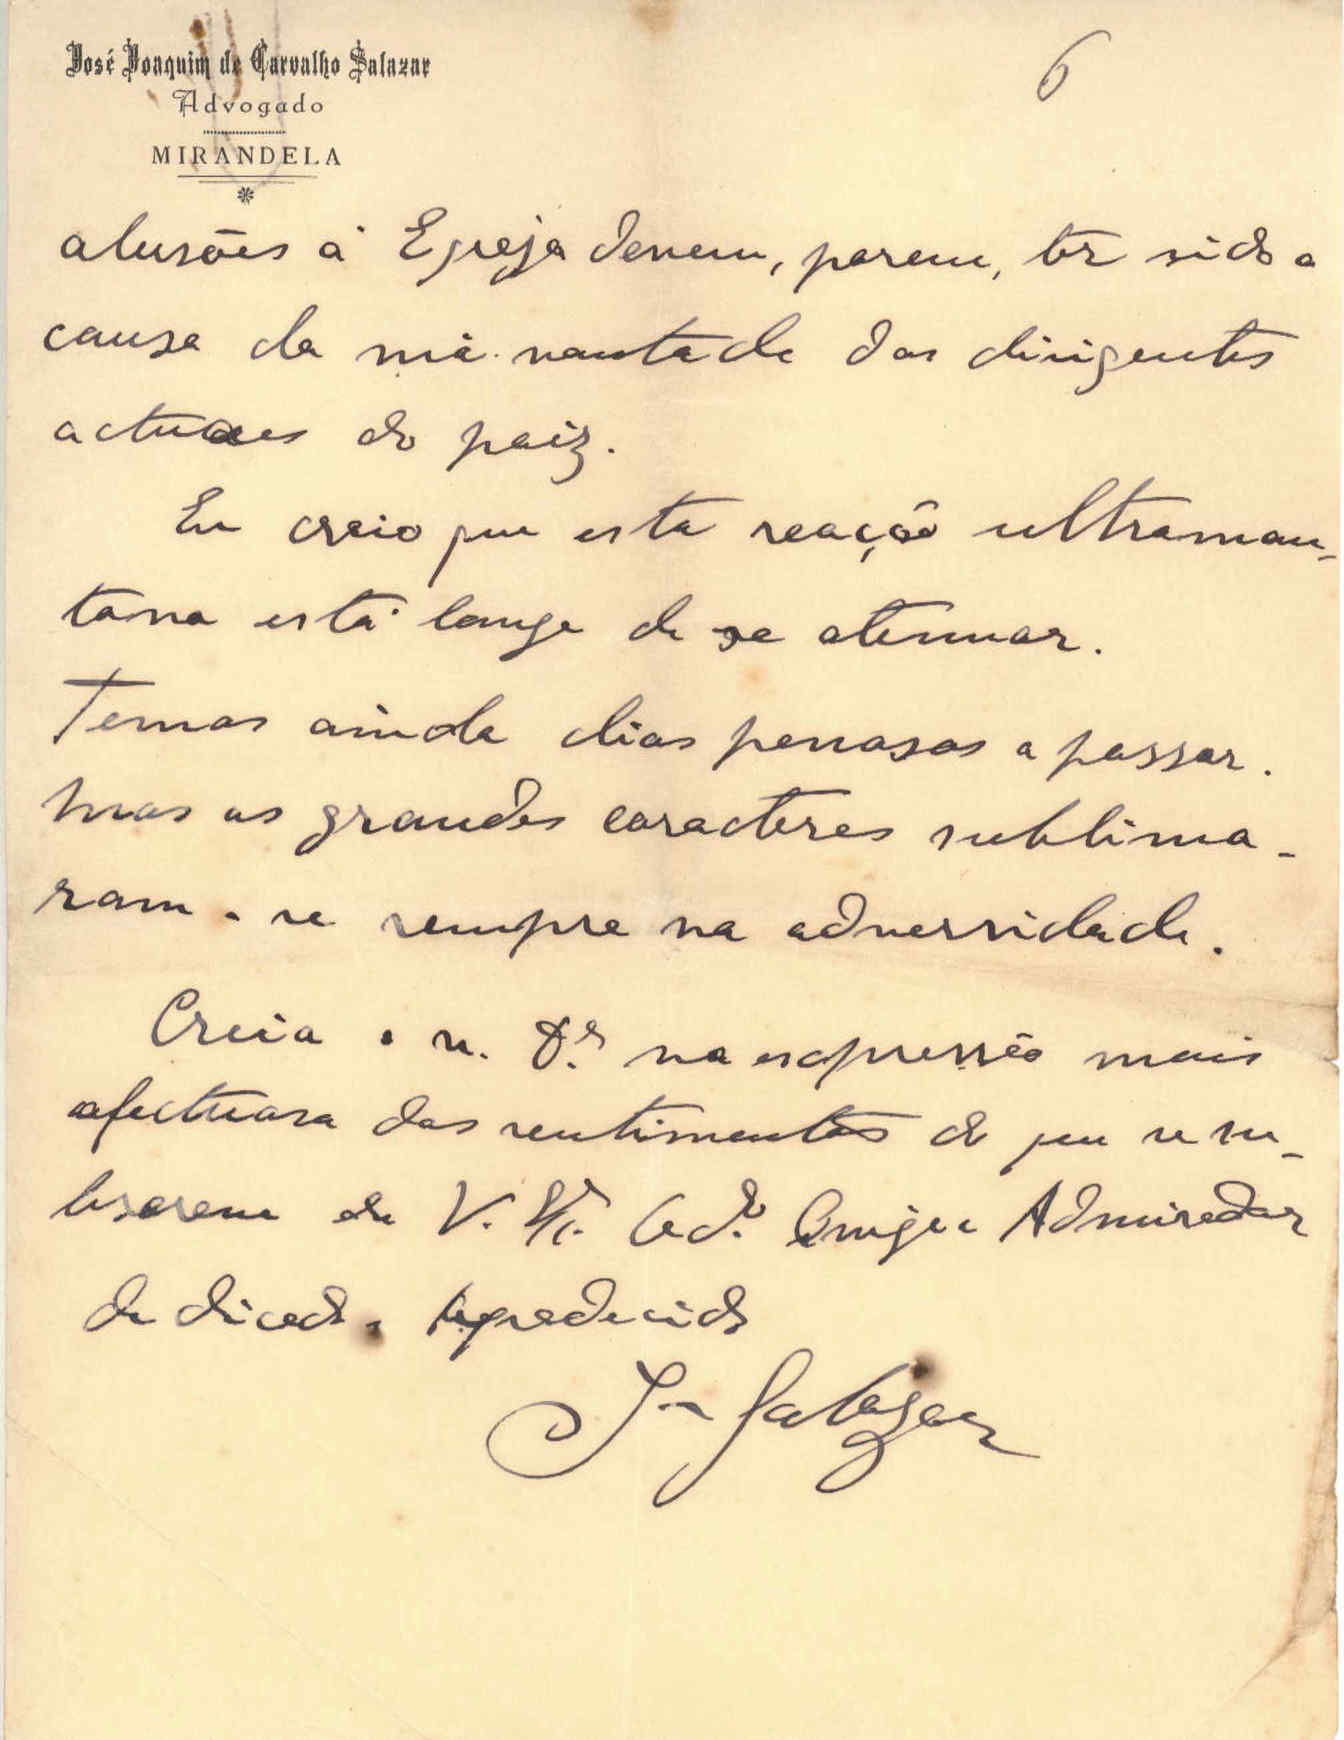 José Joaquim de Carvalho Salazar
Advogado
MIRANDELA
6
alusões á Egreja devem, porem, ter sido a
causa da má vontade dos dirigentes
actuaes do paiz.
Eu creio que esta reação ultramon-
tana está longe de se atenuar.
Temos ainda dias penosos a passar.
Mas os grandes caracteres sublima-
ram-se sempre na adversidade.
Creia o sr. Dr. na expressão mais
afectuosa dos sentimentos do que se su-
bscreve de V. Amigo e Admirador
dedicado e Agradecido
Salazar